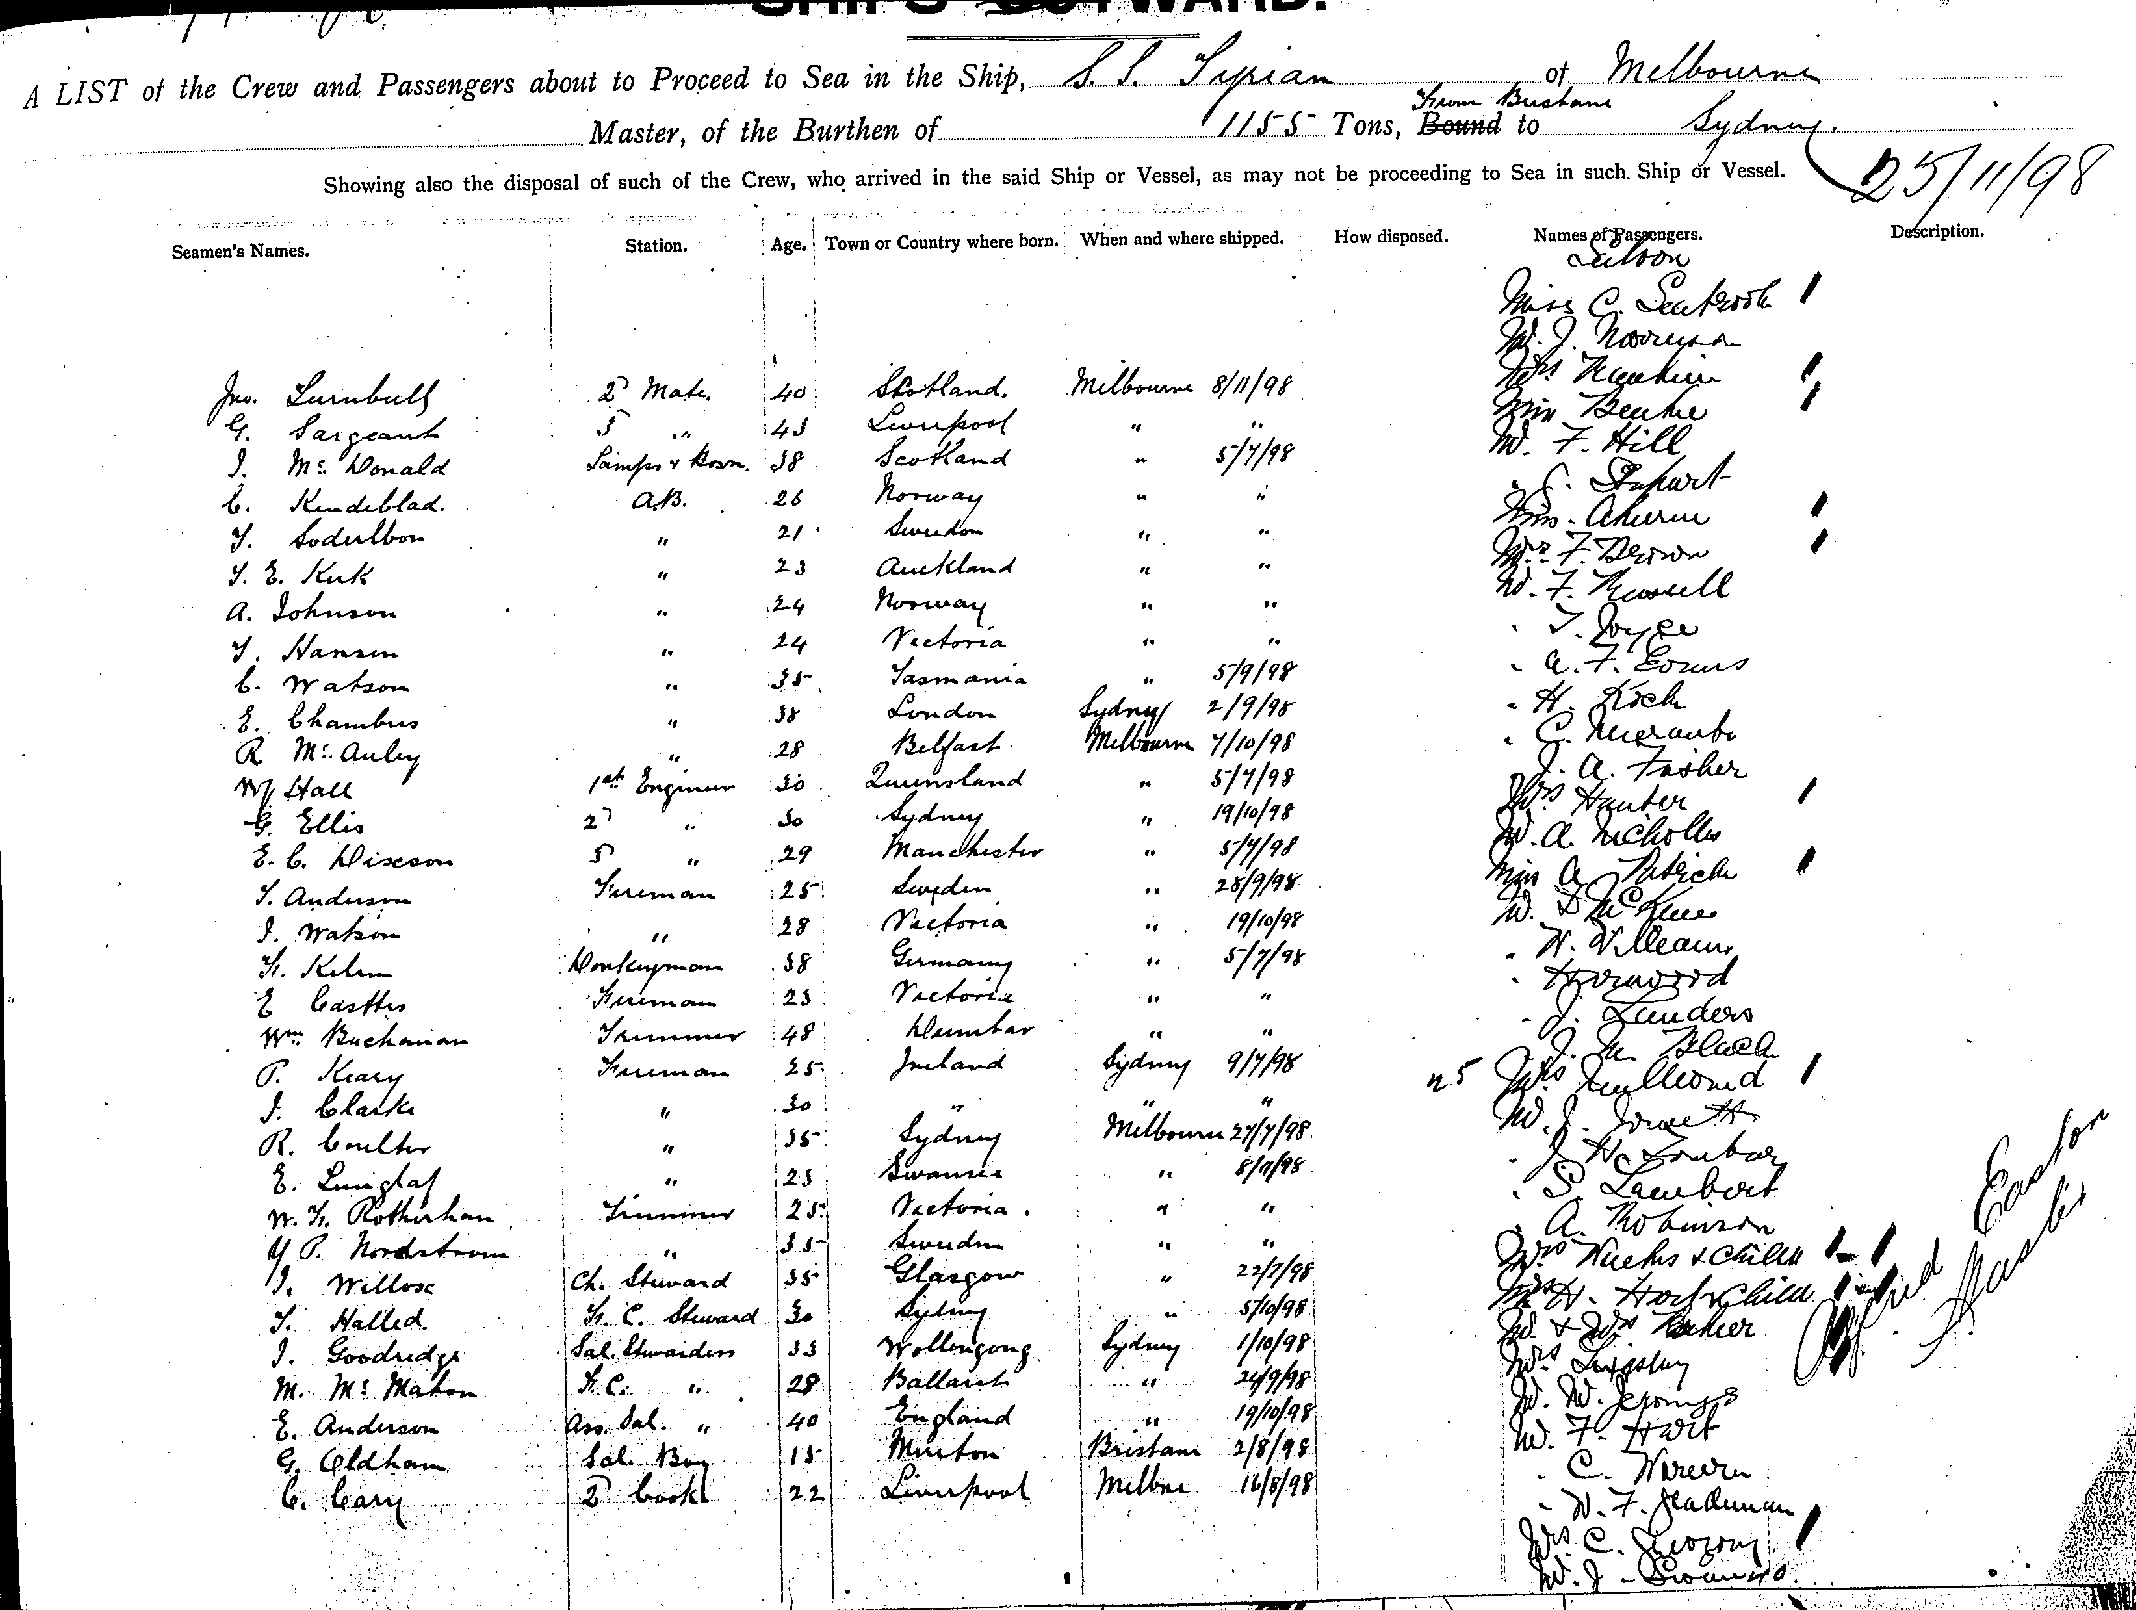 SHIPS OUTWARD.
A LIST of the Crew and Passengers about to Proceed to Sea in the Ship, S. S. Tyrian of Melbourne
From Brisbane
Master, of the Burthen of 1155 Tons, Bound to Sydney.
Showing also the disposal of such of the Crew, who arrived in the said Ship or Vessel, as may not be proceeding to Sea in such Ship or Vessel.
25/11/98
Seamen's Names. Station. Age. Town or Country where born. When and where shipped. How disposed. Names of Passengers. Description.
Saloon
Miss C. 1
W. J.
Mrs Rankin 1
Miss 1
Jno. Turnbull 2d Mate. 40 Scotland. Melbourne 8/11/98
G. Sargeant 3 " 43 Liverpool " "
W. F. Hill
J. McDonald Lamps & Bosn. 38 Scotland " 5/7/98
C. Kindeblad. A.B. 26 Norway " "
Miss Ahern 1
" 21 Sweden " "
Mrs F. Brown 1
T. E. Kirk " 23 Auckland " "
W. F. Russell
A. Johnson " 24 Norway " "
" T. Joyce
T. Hansen " 24 Victoria " "
" A. F. Evans
C. Watson " 35 Tasmania " 5/9/98
" H. Koch
E. Chambers " 38 London Sydney 2/9/98
" C.
R McAuley " 28 Belfast Melbourne 7/10/98
J. A. Fisher
W Hall 1st Engineer 30 Queensland " 5/7/98
Mrs Hunter 1
G. Ellis 2d " 30 Sydney " 19/10/98
W. A. Nicholls
E. C. Dixeson 3 " 29 Manchester " 5/7/98
Miss A Patrick 1
T. Anderson Fireman 25 Sweden " 28/9/98
J. Watson " 28 Victoria " 19/10/98
" W. Williams
Donkeyman 38 Germany " 5/7/98
" Horwood
E Fireman 23 Victoria " "
" J. Saunders
Wm Buchanan Trimmer 48 Dunbar " "
J. M. Black
P. Keary Fireman 25 Ireland Sydney 9/7/98
25 Mrs 1
J. Clarke " 30 " " "
R. Coulter " 35 Sydney Melbourne 27/7/98
E. " 23 Swansea "
" S. Lambert
W. H. Rotherham Trimmer 25 Victoria. " "
" A. Robinson
P. Nordstrom " 35 Sweden " "
Mrs & Child 1 - 1
J. Willox Ch. Steward 35 Glasgow " 22/7/98
Mrs H. & Child
T. Halled. F. C. Steward 30 Sydney " 5/10/98
J. Goodridge Sal. Stewardess 33 Wollongong Sydney 1/10/98
M. McMahon F. C. " 28 Ballarat " 24/9/98
W. W. Jennings
E. Anderson Ass. Sal. " 40 England " 19/10/98
W. F. Hart
G. Oldham Sal. Boy 15 Brisbane 2/8/98
" C. Warren
C. Cary 2d Cook 22 Liverpool Melbne 16/8/98
" W. F.
Mrs C. 1
W. J.
Alfred Easton